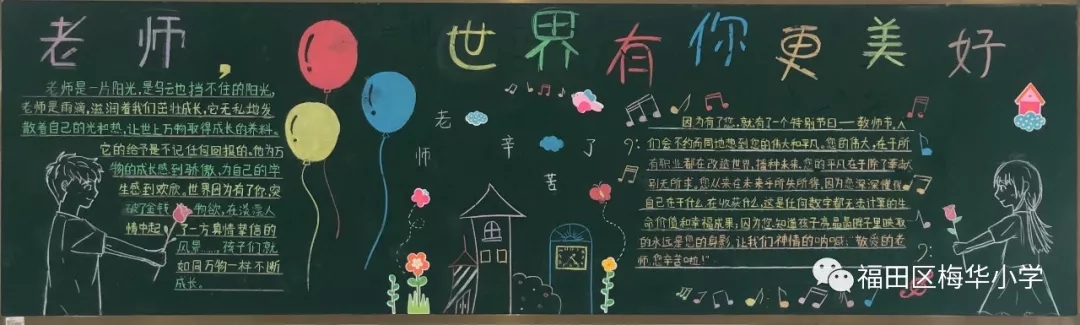 老师,世界有你更美好
老师是一片阳光,是乌云也挡不住的阳光,
老师是雨滴,滋润着我们茁壮成长,它无私地发
散着自己的光和热,让世上万物取得成长的养料。
它的给予是不记任何回报的。他为万
物的成长感到骄傲,为自己的学
生感到欢欣。世界因为有了你,突
破了金钱 物欲,在淡漠人
情中起 了一方真情挚信的
风景……孩子们就
如同万物一样不断
成长。
老师辛苦了
因为有了您,就有了一个特别节日——教师节,人
们会不约而同地想到您的伟大和平凡。您的伟大,在于所
有职业都在改造世界,播种未来,您的平凡在于除了奉献
别无所求。您从来在未来乎所失所得,因为您深深懂得
自己在干什么,在收获什么,这是任何数字都无法计算的生
命价值和幸福成果;因为您知道孩子亮晶晶眸子里映取
的永远是您的身影,让我们神情的呐喊:"敬爱的老
师,您辛苦啦!"
福田区梅华小学